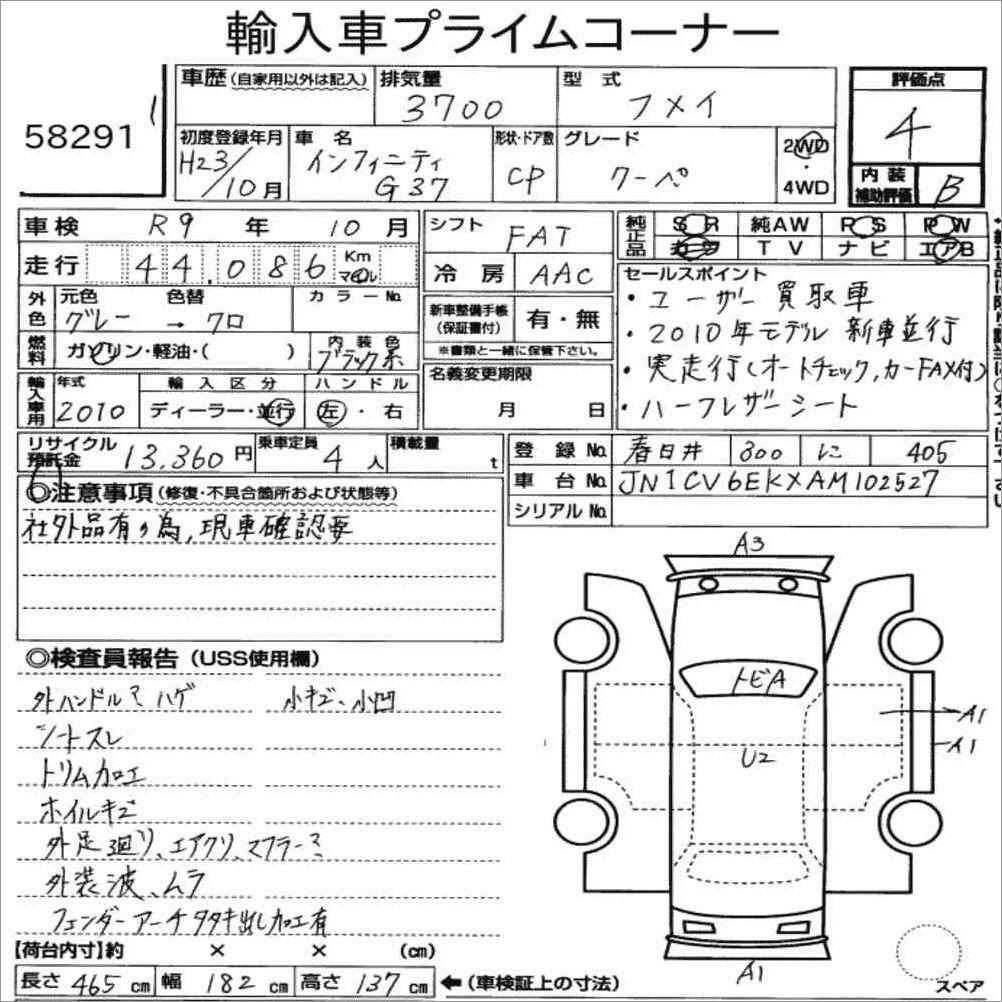 輸入車プライムコーナー
58291 1
車歴(自家用以外は記入) 排気量 3700 型式 フメイ 評価点 4
初度登録年月 H23/10月 車名 インフィニティ G37 形状・ドア数 CP グレード クーペ 2WD・4WD 内装補助評価 B
車検 R9年 10月 シフト FAT 純正品 SR 純AW PS PW
カワ TV ナビ エアB
走行 44,086 Km マイル 冷房 AAC
セールスポイント
・ユーザー買取車
・2010年モデル 新車並行
・実走行(オートチェック,カーFAX付)
・ハーフレザーシート
外色 元色 グレー → 色替 クロ カラーNo. 新車整備手帳(保証書付) 有・無
※書類と一緒に保管下さい。
燃料 ガソリン・軽油・( ) 内装色 ブラック系
名義変更期限 月 日
輸入車用 年式 2010 輸入区分 ディーラー・並行 ハンドル 左・右
リサイクル預託金 13,360円 乗車定員 4人 積載量 t
登録No. 春日井 300 に 405
車台No. JN1CV6EKXAM102527
シリアルNo.
◎注意事項(修復・不具合箇所および状態等)
社外品有りの為,現車確認要
◎検査員報告(USS使用欄)
外ハンドルマハゲ 小キズ、小凹
シートスレ
トリム加工
ホイルキズ
外足廻り、エアクリ、マフラーマ
外装波、ムラ
フェンダーアーチタタキ出し加工有
A3
トビA
A1
A1
U2
A1
スペア
【荷台内寸】約 × × (cm)
長さ 465 cm 幅 182 cm 高さ 137 cm ←(車検証上の寸法)